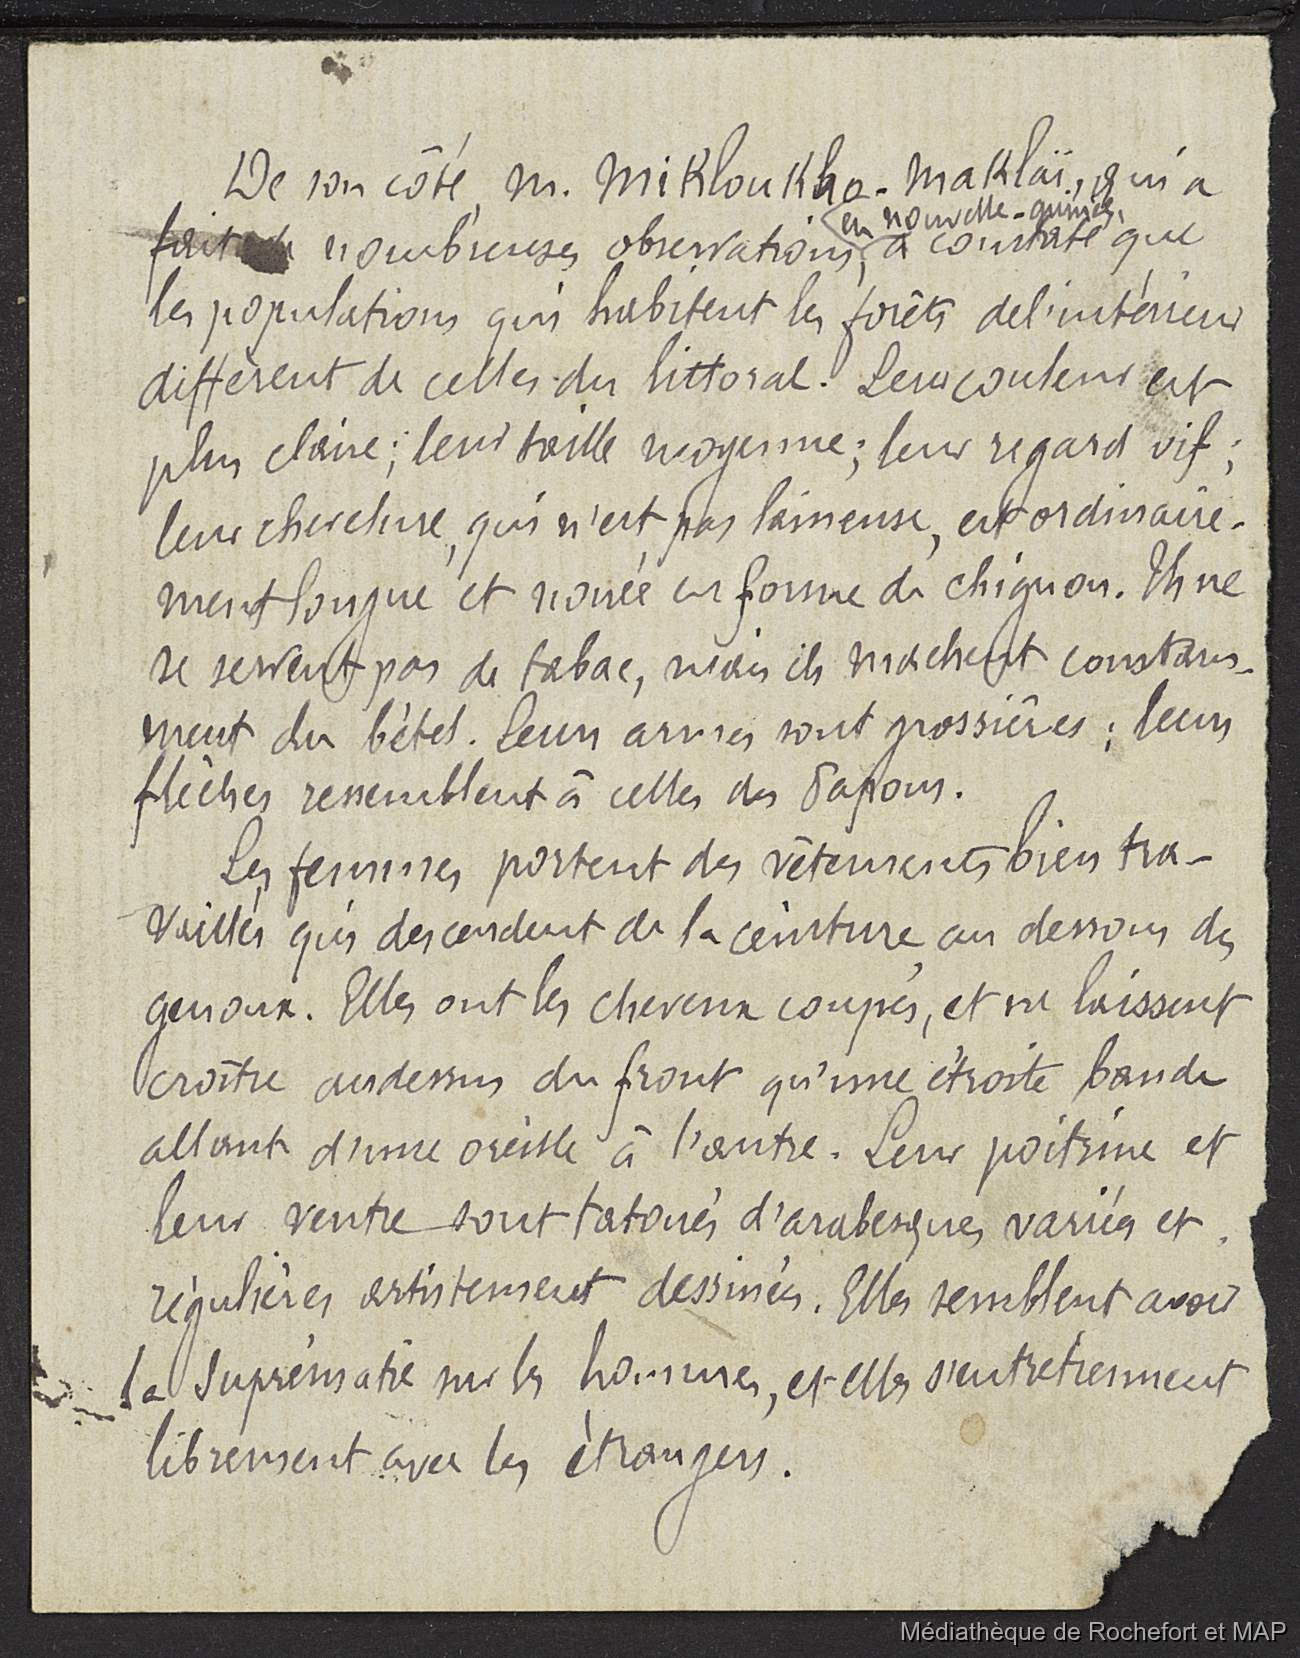 De son côté, M. Mikloukho-Maklaï, qui a
en nouvelle-guinée,
fait de nombreuses observations, a constaté que
les populations qui habitent les forêts de l'intérieur
diffèrent de celles du littoral. Leur couleur est
plus claire; leur taille moyenne; leur regard vif;
leur chevelure, qui n'est pas laineuse, est ordinaire-
ment longue et nouée en forme de chignon. Ils ne
se servent pas de tabac, mais ils machent constam-
ment du bétel. Leurs armes sont grossières; leurs
flèches ressemblent à celles des Papous.
Les femmes portent des vêtements bien tra-
vaillés qui descendent de la ceinture au dessous des
genoux. Elles ont les cheveux coupés, et ne laissent
croître au dessus du front qu'une étroite bande
allant d'une oreille à l'autre. Leur poitrine et
leur ventre sont tatoués d'arabesques variées et
régulières artistement dessinées. Elles semblent avoir
la suprématie sur les hommes, et elles s'entretiennent
librement avec les étrangers.
Médiathèque de Rochefort et MAP